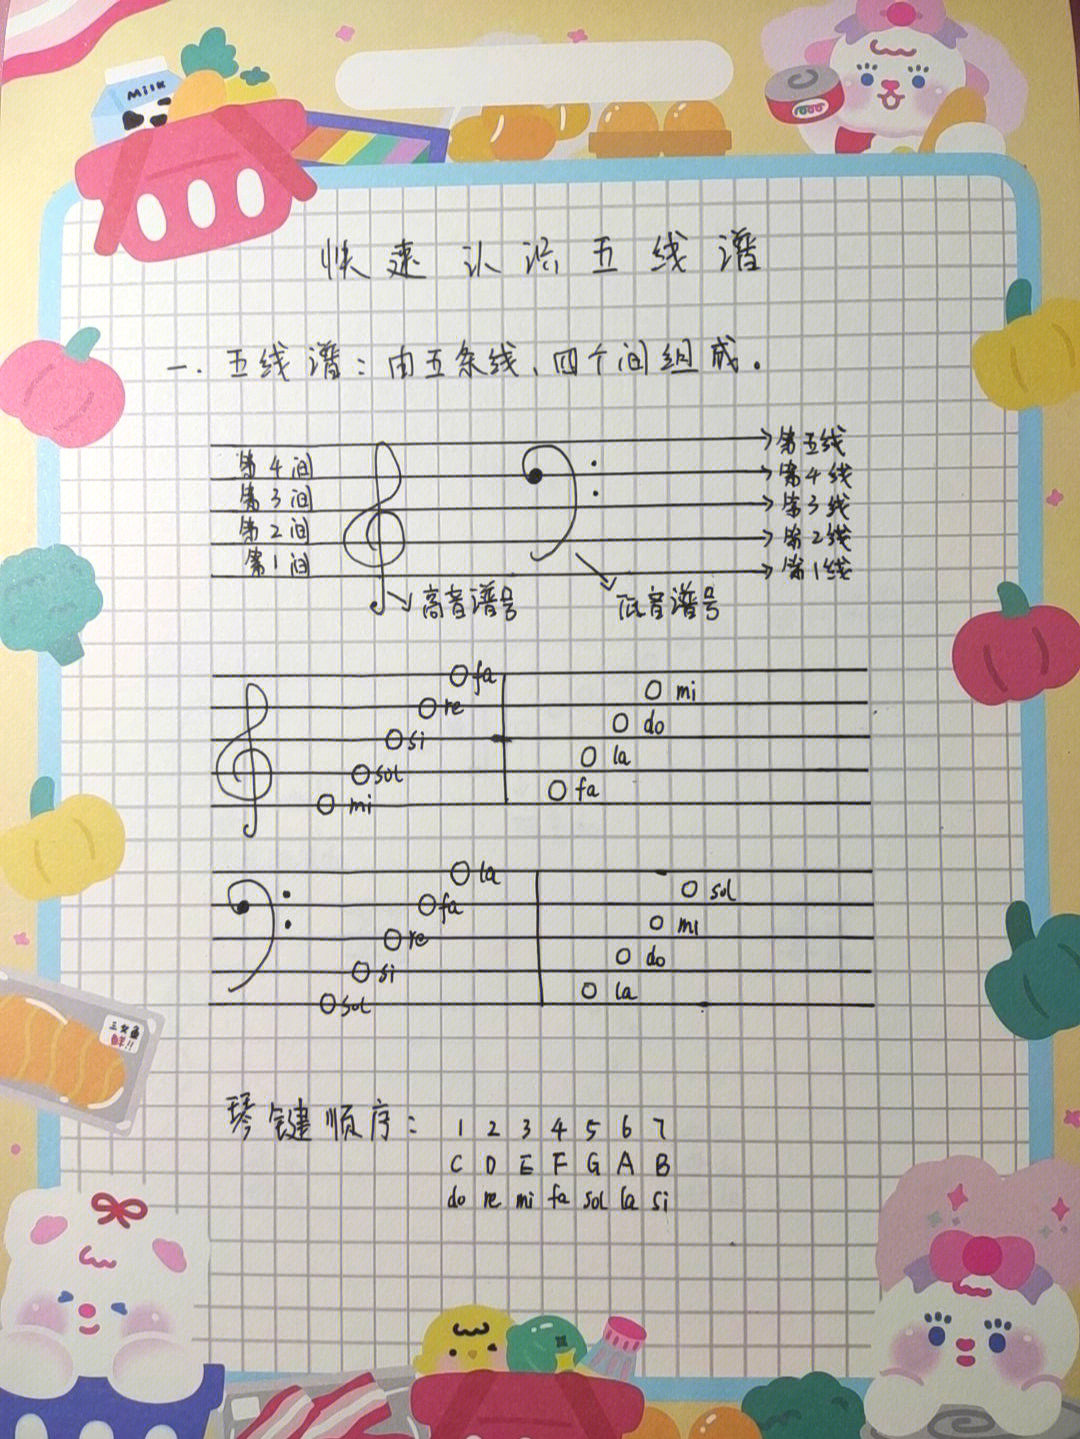 MilK
快速认识五线谱
一.五线谱:由五条线、四个间组成.
第4间
第3间
第2间
第1间
→第五线
→第4线
→第3线
→第2线
→第1线
高音谱号
低音谱号
fa
re
si
sol
mi
mi
do
la
fa
la
fa
re
si
sol
sol
mi
do
la
三文鱼
鲜!!
琴键顺序: 1 2 3 4 5 6 7
C D E F G A B
do re mi fa sol la si